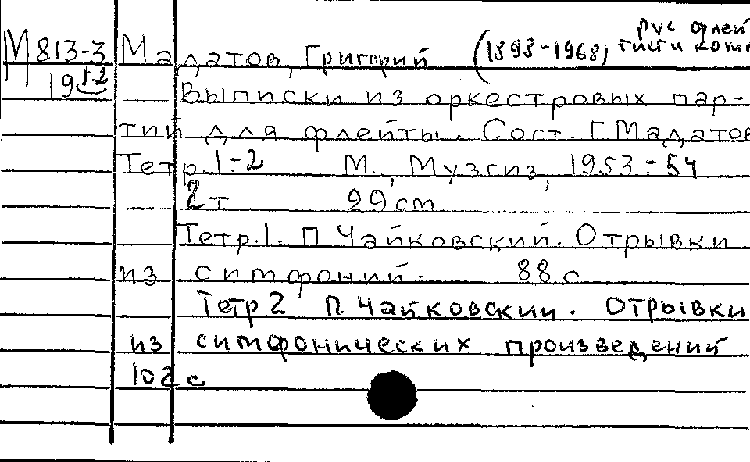 М 813-3 Мадатов, Григорий (1898-1968) рус флей
19 1-2 тист и комп
Выписки из оркестровых пар-
тий для флейты. Сост. Г. Мадатов
Тетр. 1-2 М., Музгиз, 1953-54
2 т 29 cm
Тетр. 1. П Чайковский. Отрывки
из симфоний. 88 с
Тетр 2 П. Чайковский. Отрывки
из симфонических произведений
102 с